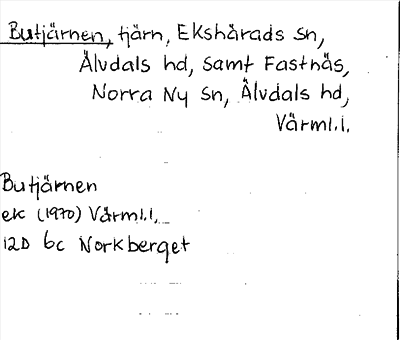 Butjärnen, tjärn, Ekshärads sn,
Älvdals hd, samt Fastnäs,
Norra Ny sn, Älvdals hd,
Värml.l.
Butjärnen
ek (1970) Värml.l.
12D 6c Norkberget